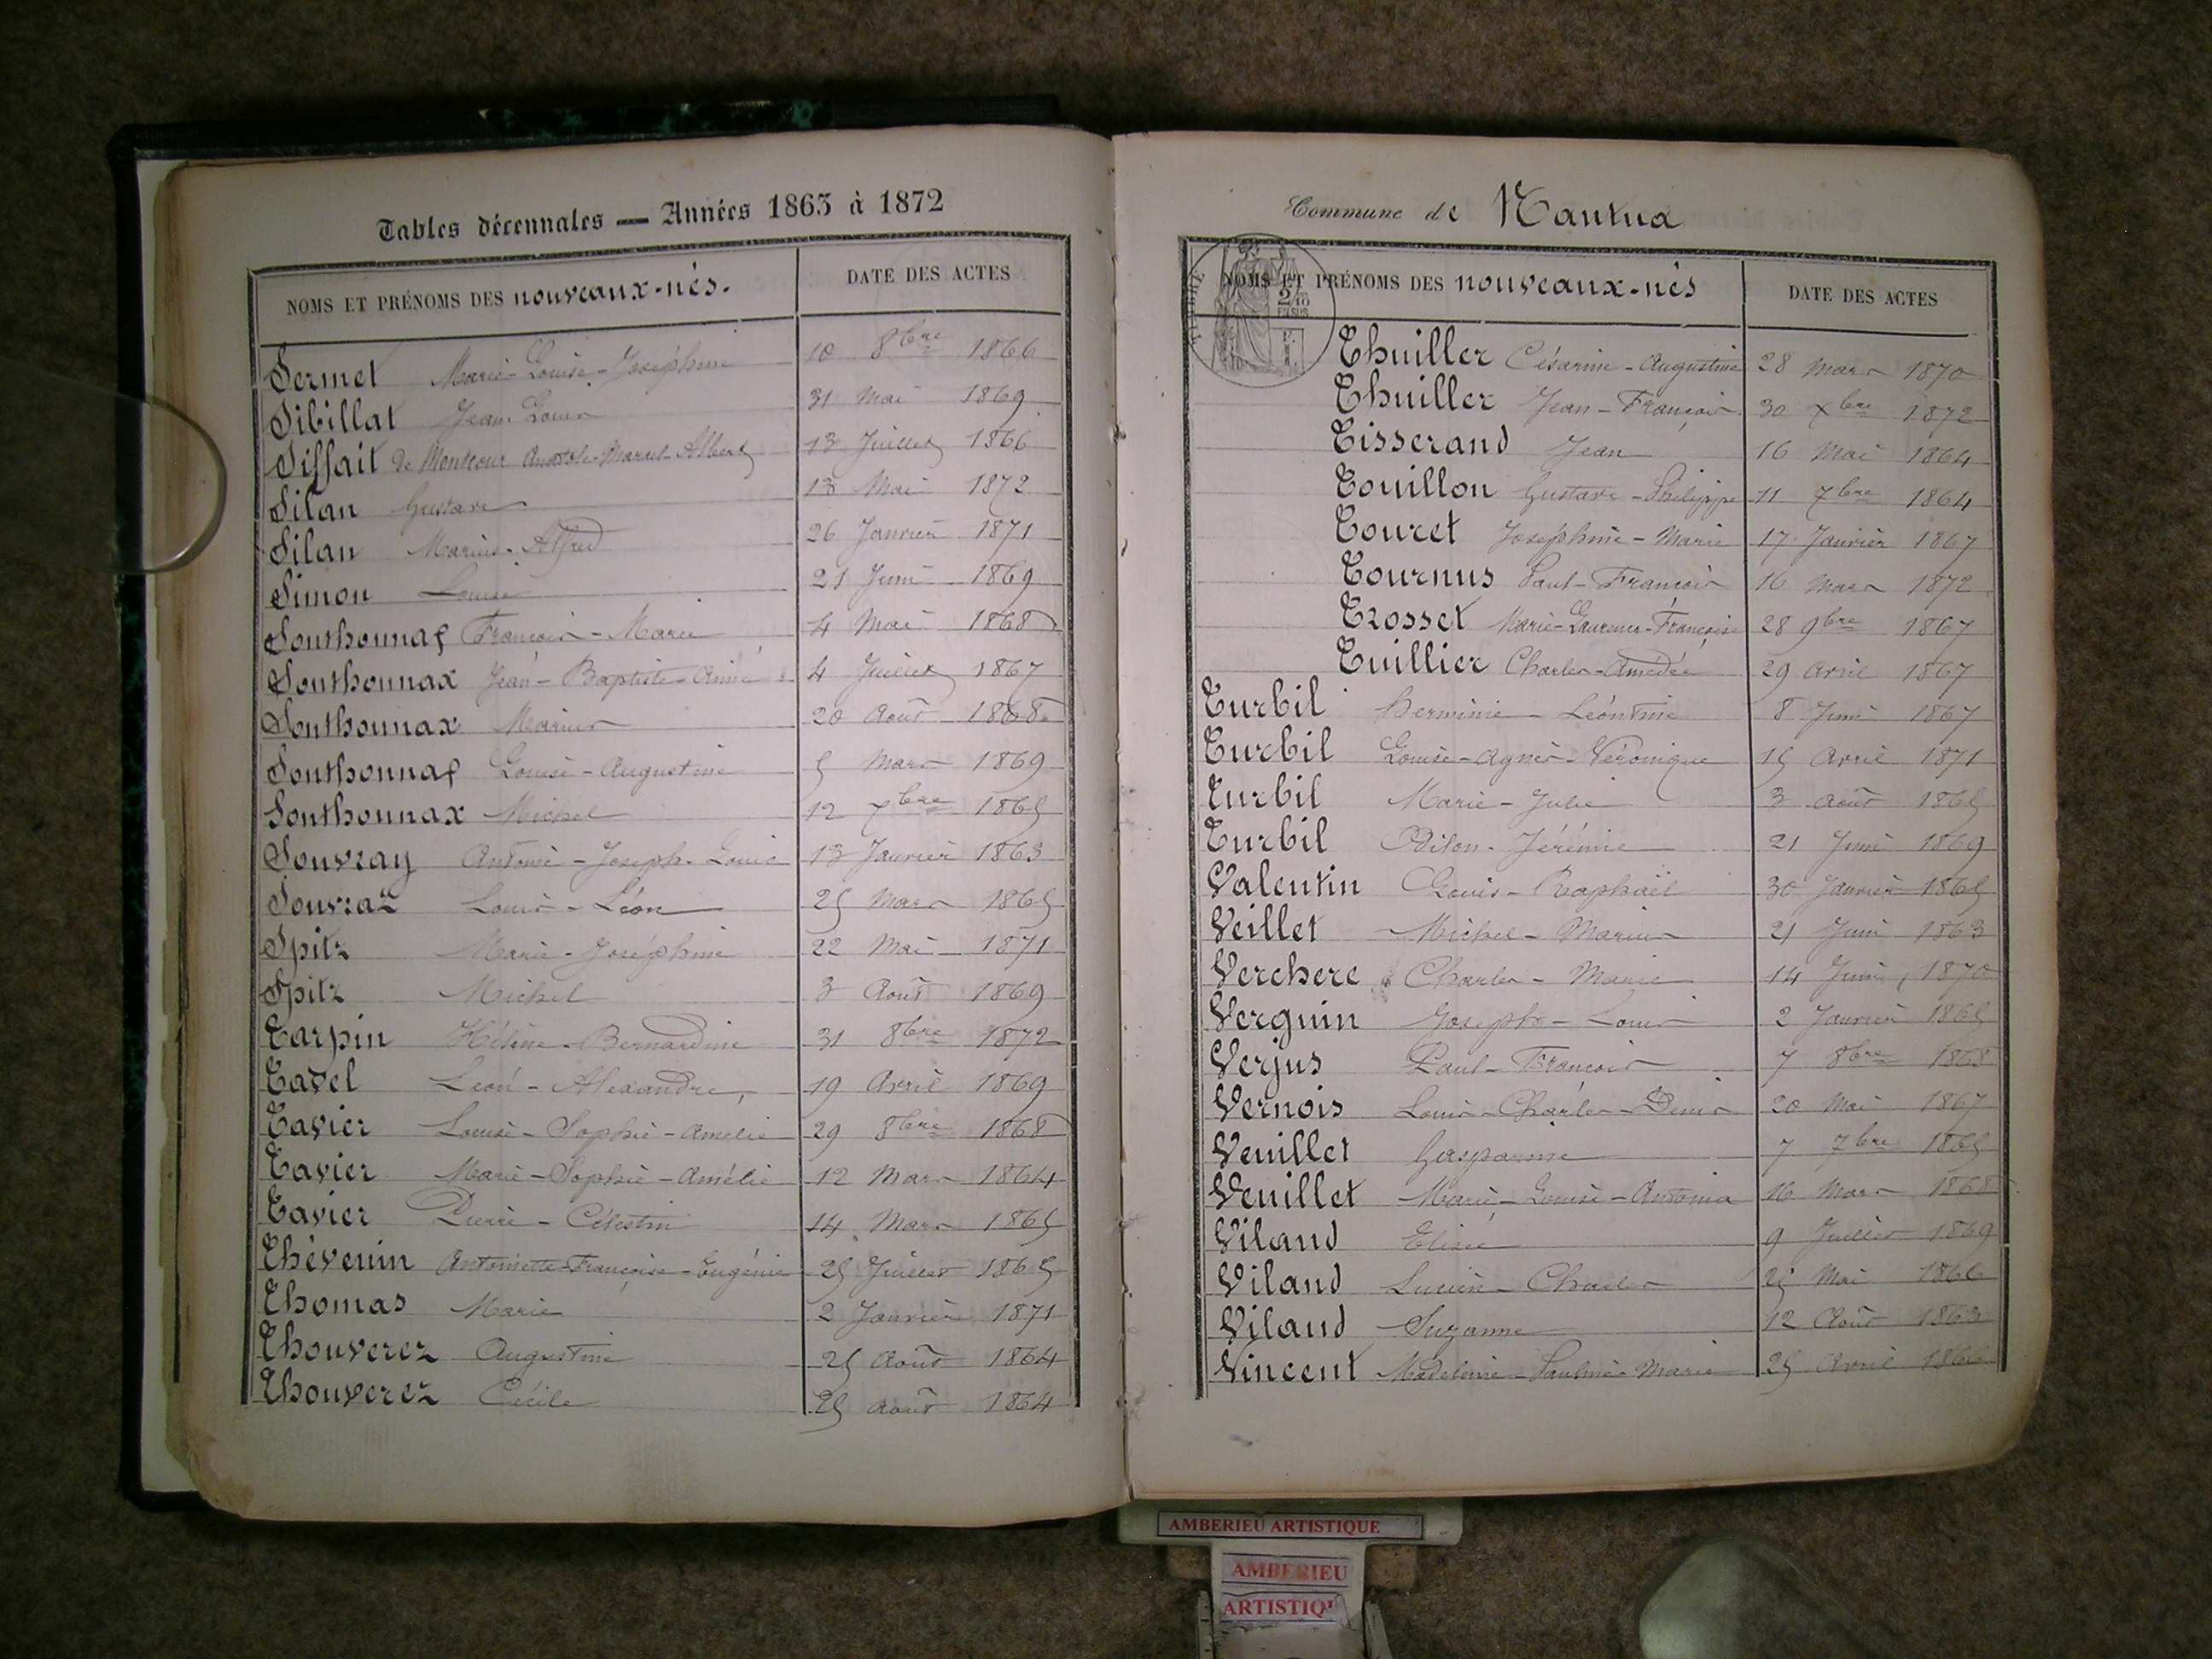 Tables décennales — Années 1863 à 1872
NOMS ET PRÉNOMS DES nouveaux-nés.
DATE DES ACTES
Sermet Marie-Louise-Joséphine 10 8bre 1866
Sibillat Jean Louis 31 Mai 1869
Siffait de Moncour Anatole-Marcel-Albert 13 Juillet 1866
Silan Gustave 13 Mai 1872
Silan Marius-Alfred 26 Janvier 1871
Simon Louise 21 Juin 1869
Sonthonnax François-Marie 4 Mai 1868
Sonthonnax Jean-Baptiste-Aimé 4 Juillet 1867
Sonthonnax Marius 20 Août 1868
Sonthonnax Louise-Augustine 5 Mars 1869
Sonthonnax Michel 12 xbre 1865
Souvray Antoine-Joseph-Louis 13 Janvier 1863
Souvraz Louis-Léon 25 Mars 1865
Spitz Marie-Joséphine 22 Mai 1871
Spitz Michel 3 Août 1869
Tarpin Hélène-Bernardine 31 8bre 1872
Tavel Léon-Alexandre 19 Avril 1869
Tavier Louise-Sophie-Amélie 29 8bre 1868
Tavier Marie-Sophie-Amélie 12 Mars 1864
Tavier Pierre-Célestin 14 Mars 1865
Thévenin Antoinette-Françoise-Eugénie 25 Juillet 1865
Thomas Marie 2 Janvier 1871
Thouverez Augustine 25 Août 1864
Thouverez Cécile 25 Août 1864
Commune de Nantua
NOMS ET PRÉNOMS DES nouveaux-nés
DATE DES ACTES
Thuiller Césarine-Augustine 28 Mars 1870
Thuiller Jean-François 30 xbre 1872
Tisserand Jean 16 Mai 1864
Touillon Gustave-Philippe 11 7bre 1864
Touret Joséphine-Marie 17 Janvier 1867
Tournus Paul-François 16 Mars 1872
Trosset Marie-Laurence-Françoise 28 9bre 1867
Tuillier Charles-Amédée 29 Avril 1867
Turbil Herminie-Léontine 8 Juin 1867
Turbil Louise-Agnès-Véronique 15 Avril 1871
Turbil Marie-Julie 3 Août 1865
Turbil Odilon-Jérémie 21 Juin 1869
Valentin Louis-Raphaël 30 Janvier 1865
Veillet Michel-Marius 21 Juin 1863
Verchere Charles-Marie 14 Juin 1870
Verguin Joseph-Louis 2 Janvier 1865
Verjus Paul-François 7 8bre 1868
Vernois Louis-Charles-Denis 20 Mai 1867
Veuillet Gasparine 7 7bre 1865
Veuillet Marie-Louise-Antonia 16 Mars 1868
Viland Elisée 9 Juillet 1869
Viland Lucien-Charles 25 Mai 1866
Viland Suzanne 12 Août 1863
Vincent Madeleine-Pauline-Marie 25 Avril 1866
AMBERIEU ARTISTIQUE
AMBERIEU
ARTISTIQU